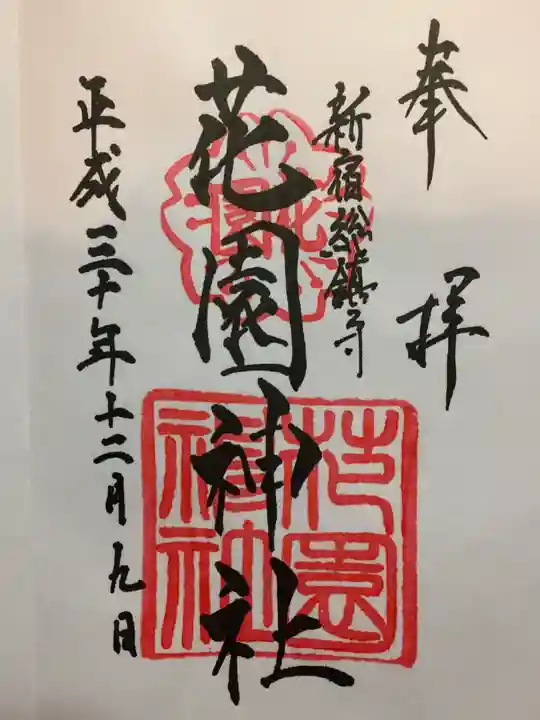 奉拝
新宿総鎮守
花園神社
平成三十年十二月九日
花園
神社